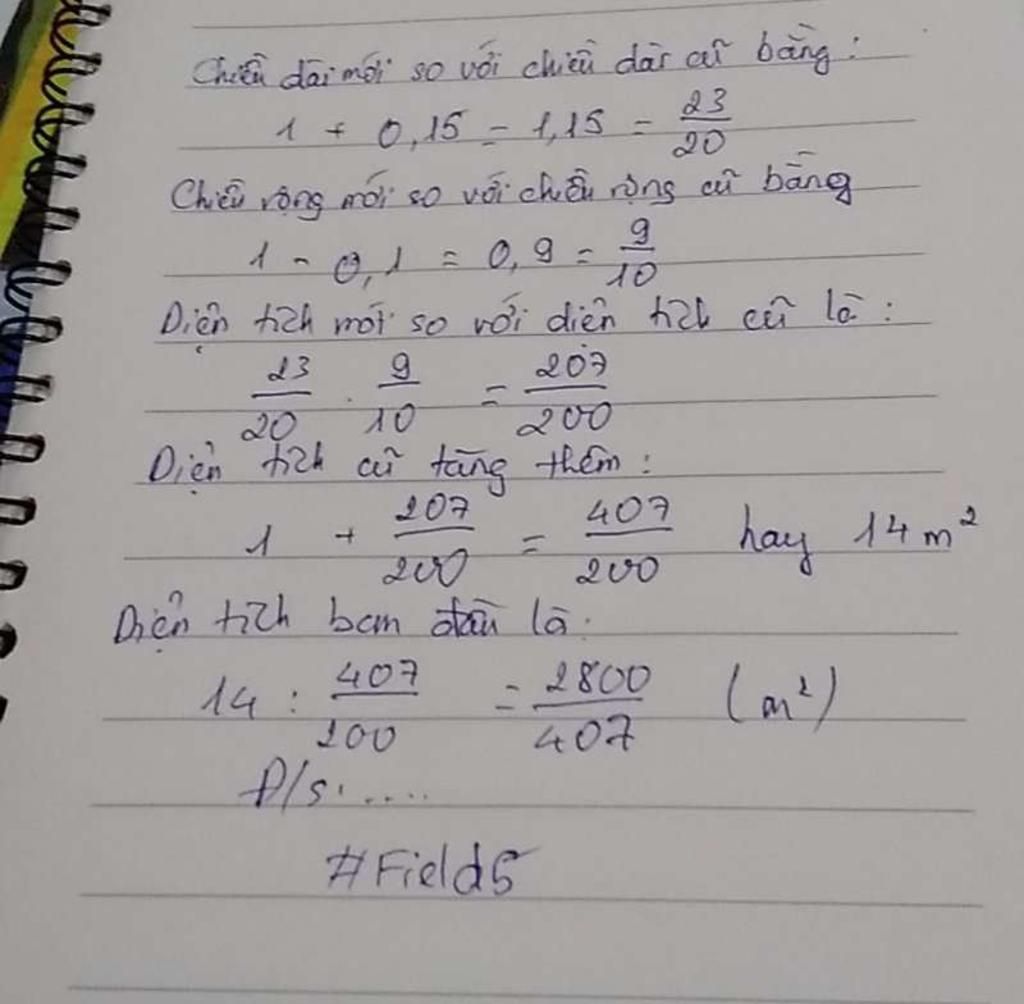 Chiều dài mới so với chiều dài cũ bằng:
1 + 0,15 = 1,15 = 23/20
Chiều rộng mới so với chiều rộng cũ bằng
1 - 0,1 = 0,9 = 9/10
Diện tích mới so với diện tích cũ là:
23/20 . 9/10 = 207/200
Diện tích cũ tăng thêm:
1 + 207/200 = 407/200 hay 14 m²
Diện tích ban đầu là:
14 : 407/200 = 2800/407 (m²)
Đ/s: ....
#Field5